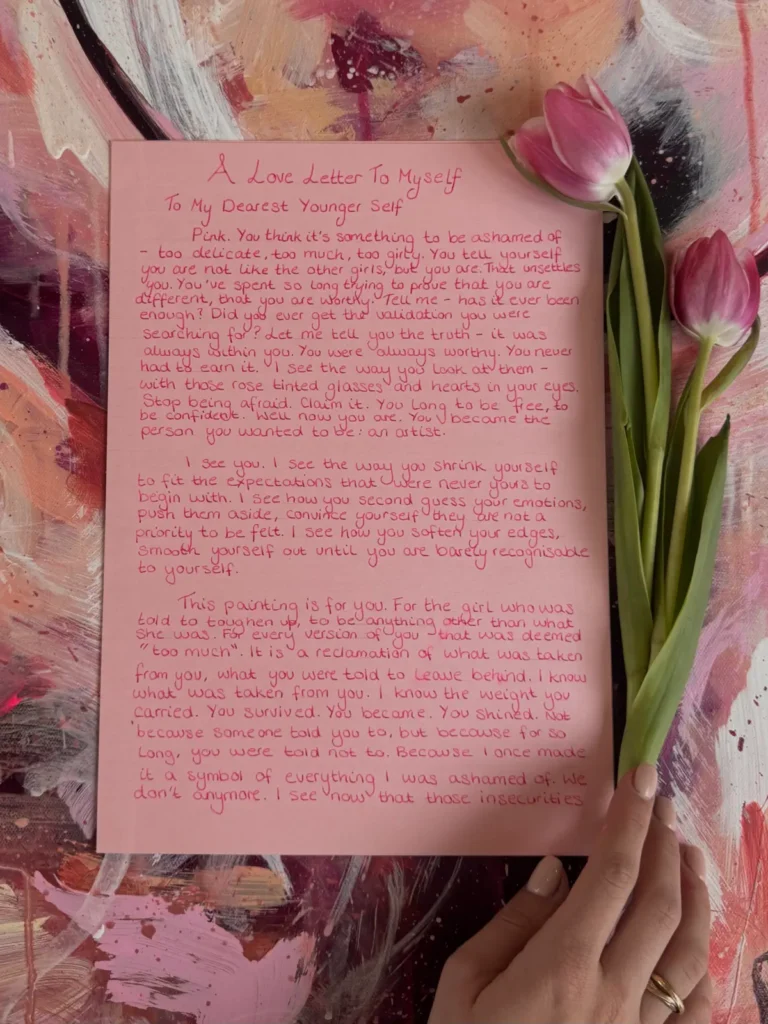 A Love Letter To Myself
To My Dearest Younger Self
Pink. You think it's something to be ashamed of
- too delicate, too much, too girly. You tell yourself
you are not like the other girls, but you are. That unsettles
you. You've spent so long trying to prove that you are
different, that you are worthy. Tell me - has it ever been
enough? Did you ever get the validation you were
searching for? Let me tell you the truth - it was
always within you. You were always worthy. You never
had to earn it. I see the way you look at them -
with those rose tinted glasses and hearts in your eyes.
Stop being afraid. Claim it. You long to be free, to
be confident. Well now you are. You became the
person you wanted to be: an artist.
I see you. I see the way you shrink yourself
to fit the expectations that were never yours to
begin with. I see how you second guess your emotions,
push them aside, convince yourself they are not a
priority to be felt. I see how you soften your edges,
smooth yourself out until you are barely recognisable
to yourself.
This painting is for you. For the girl who was
told to toughen up, to be anything other than what
she was. For every version of you that was deemed
"too much". It is a reclamation of what was taken
from you, what you were told to leave behind. I know
what was taken from you. I know the weight you
carried. You survived. You became. You shined. Not
because someone told you to, but because for so
long, you were told not to. Because I once made
it a symbol of everything I was ashamed of. We
don't anymore. I see now that those insecurities